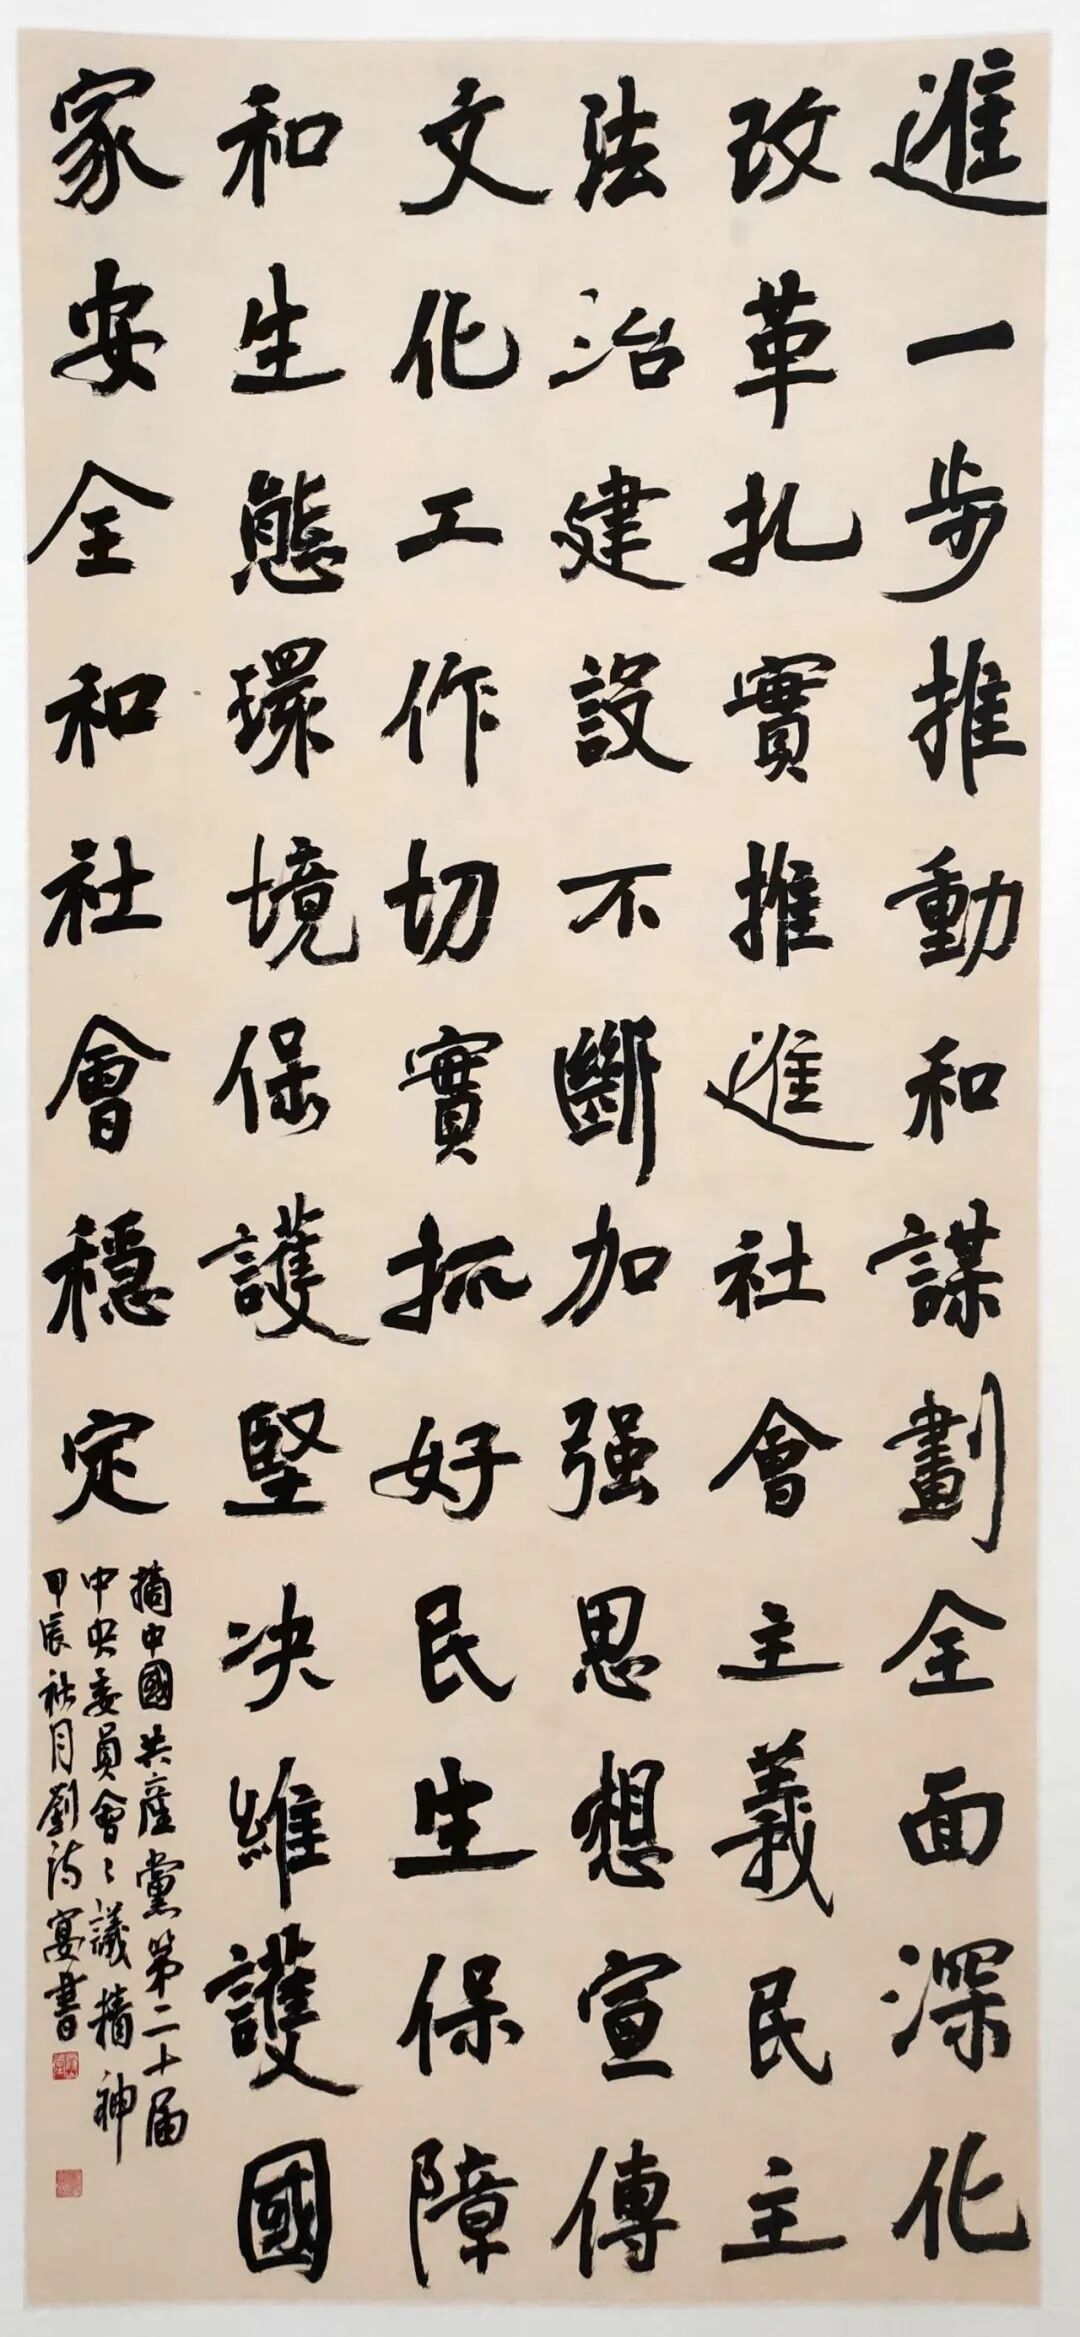 進一步推動和謀劃全面深化
改革扎實推進社會主義民主
法治建設不斷加强思想宣傳
文化工作切實抓好民生保障
和生態環境保護堅决維護國
家安全和社會穩定
摘中國共産黨第二十届
中央委員會々議精神
甲辰社月劉濤宴書